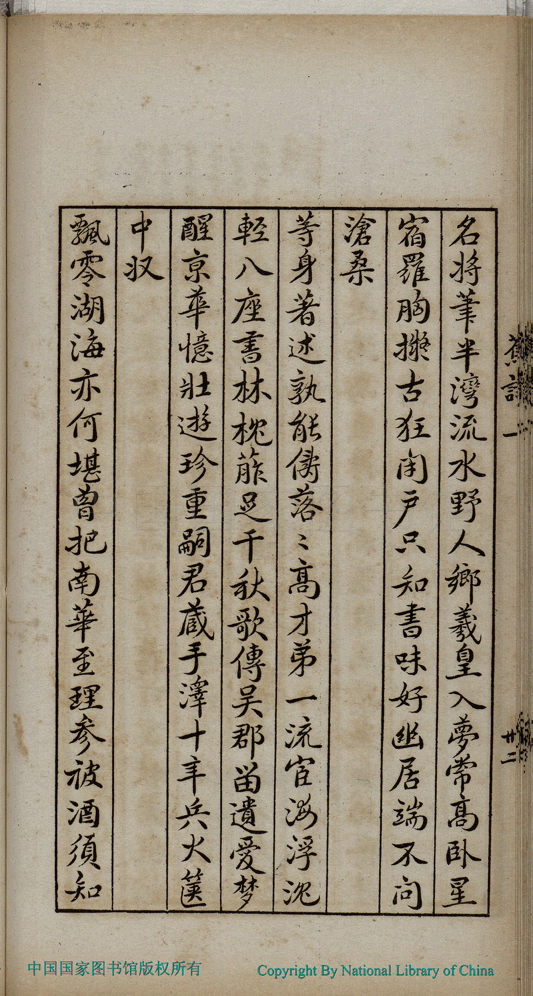 名將筆半灣流水野人鄉羲皇入夢常高卧星
宿羅胸擬古狂閉戶只知書味好幽居端不問
滄桑
等身著述孰能儔落〻高才弟一流宦海浮沈
輕八座書林枕葄足千秋歌傳吴郡畱遺愛梦
醒京華憶壯遊珍重嗣君藏手澤十年兵火篋
中収
飄零湖海亦何堪曾把南華至理參被酒須知
廿二
中国国家图书馆版权所有
Copyright By National Library of China